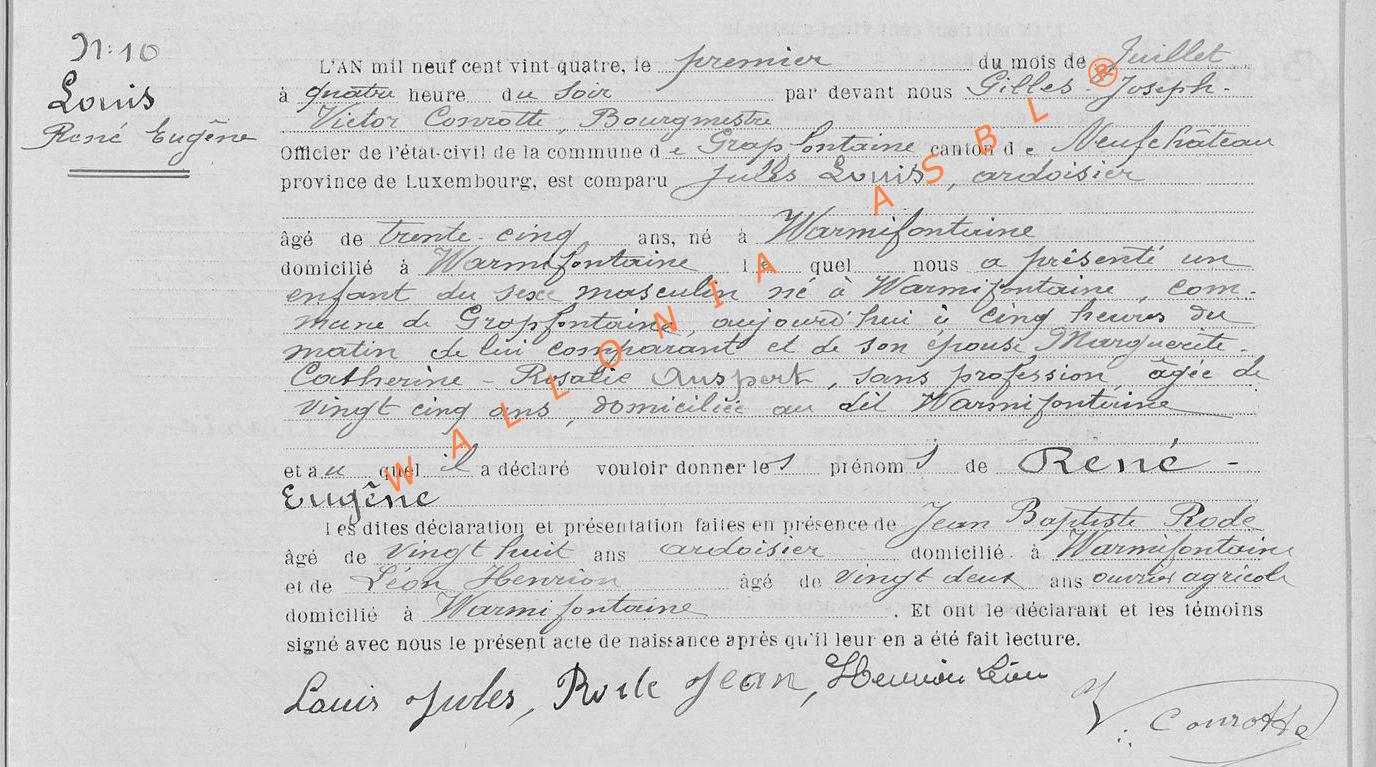 N: 10
Louis
René Eugêne
L'AN mil neuf cent vint-quatre, le premier du mois de Juillet
à quatre heure du soir par devant nous Gilles - Joseph -
Victor Conrotte, Bourgmestre
Officier de l'état-civil de la commune de Grapfontaine canton de Neufchâteau
province de Luxembourg, est comparu Jules Louis, ardoisier
âgé de trente-cinq ans, né à Warmifontaine
domicilié à Warmifontaine lequel nous a présenté un
enfant du sexe masculin né à Warmifontaine, com-
mune de Grapfontaine, aujourd'hui à cinq heures du
matin de lui comparant et de son épouse Marguerite -
Catherine - Rosalie Auspert, sans profession, âgée de
vingt cinq ans, domiciliée au dit Warmifontaine
et au quel il a déclaré vouloir donner les prénoms de René -
Eugêne
Les dites déclaration et présentation faites en présence de Jean Baptiste Rode
âgé de vingt huit ans ardoisier domicilié à Warmifontaine
et de Léon Henrion âgé de vingt deux ans ouvrier agricole
domicilié à Warmifontaine. Et ont le déclarant et les témoins
signé avec nous le présent acte de naissance après qu'il leur en a été fait lecture.
Louis Jules, Rode Jean, Henrion Léon
V. Conrotte
WALLONIA ASBL ®